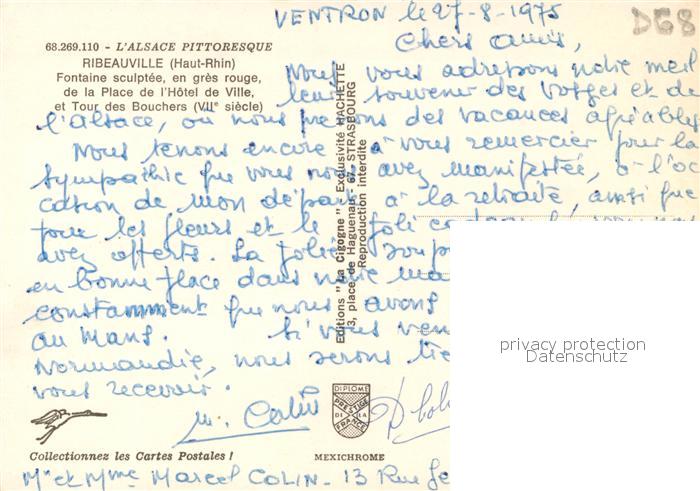 VENTRON le 27-8-1975
D68
68.269.110 - L'ALSACE PITTORESQUE
RIBEAUVILLÉ (Haut-Rhin)
Fontaine sculptée, en grès rouge,
de la Place de l'Hôtel de Ville,
et Tour des Bouchers (VIIe siècle)
Chers amis,
Nous vous adressons notre meil
leur souvenir des Vosges et de
l'alsace, où nous passons des vacances agréables
Nous tenons encore à vous remercier pour la
sympathie que vous nous avez manifestée, à l'oc
casion de mon départ à la retraite, ainsi que
pour les fleurs et le joli cadeau
avez offerts. La jolie
en bonne place dans notre
constamment que nous avons
au Mans. Si vous
Normandie, nous serons
vous recevoir.
M. Colin
Editions "La Cigogne" Exclusivité HACHETTE
3, place de Haguenau, 67-STRASBOURG
Reproduction interdite
privacy protection
Datenschutz
DIPLOME
PRESTIGE
DE LA
FRANCE
Collectionnez les Cartes Postales !
MEXICHROME
Mr et Mme Marcel COLIN - 13 Rue